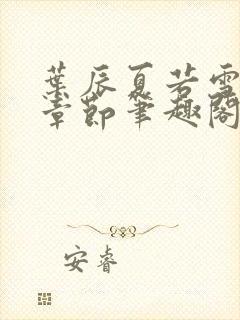 葉辰夏若雪
章節筆趣閣
安睿